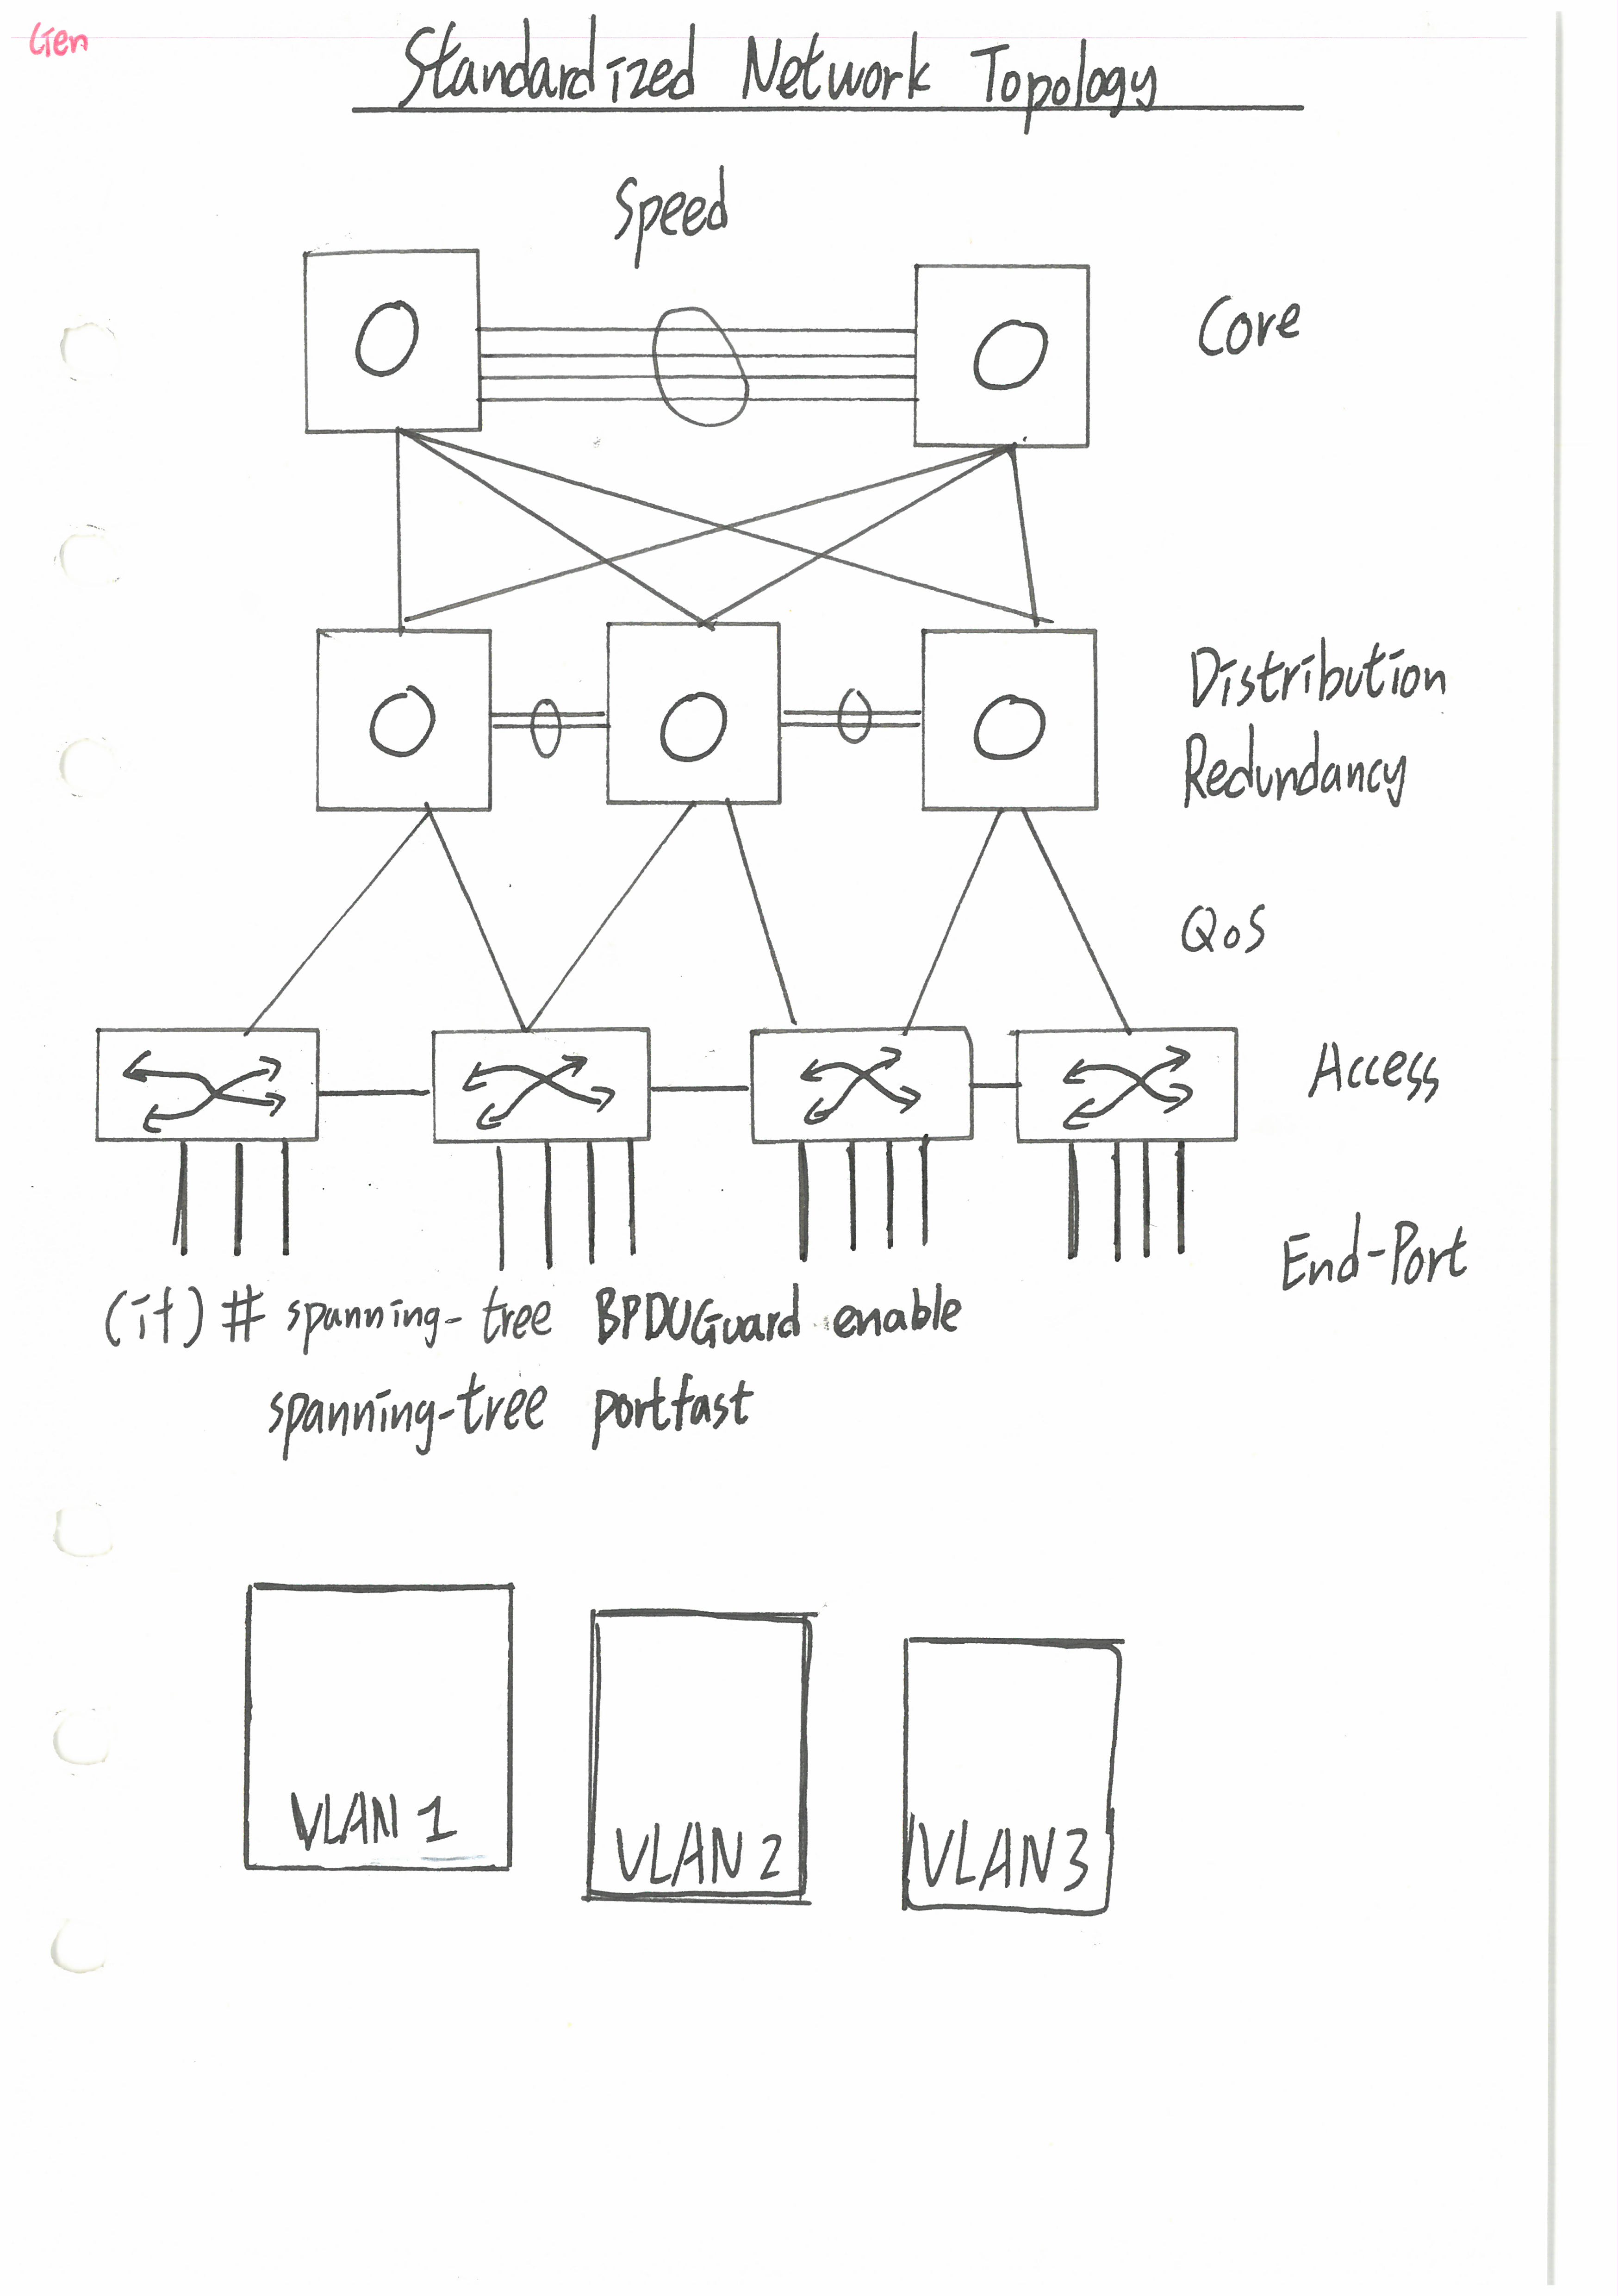 Gen
Standardized Network Topology
Speed
Core
Distribution
Redundancy
QoS
Access
End-Port
(it) # spanning-tree BPDUGuard enable
spanning-tree portfast
VLAN 1
VLAN 2
VLAN 3